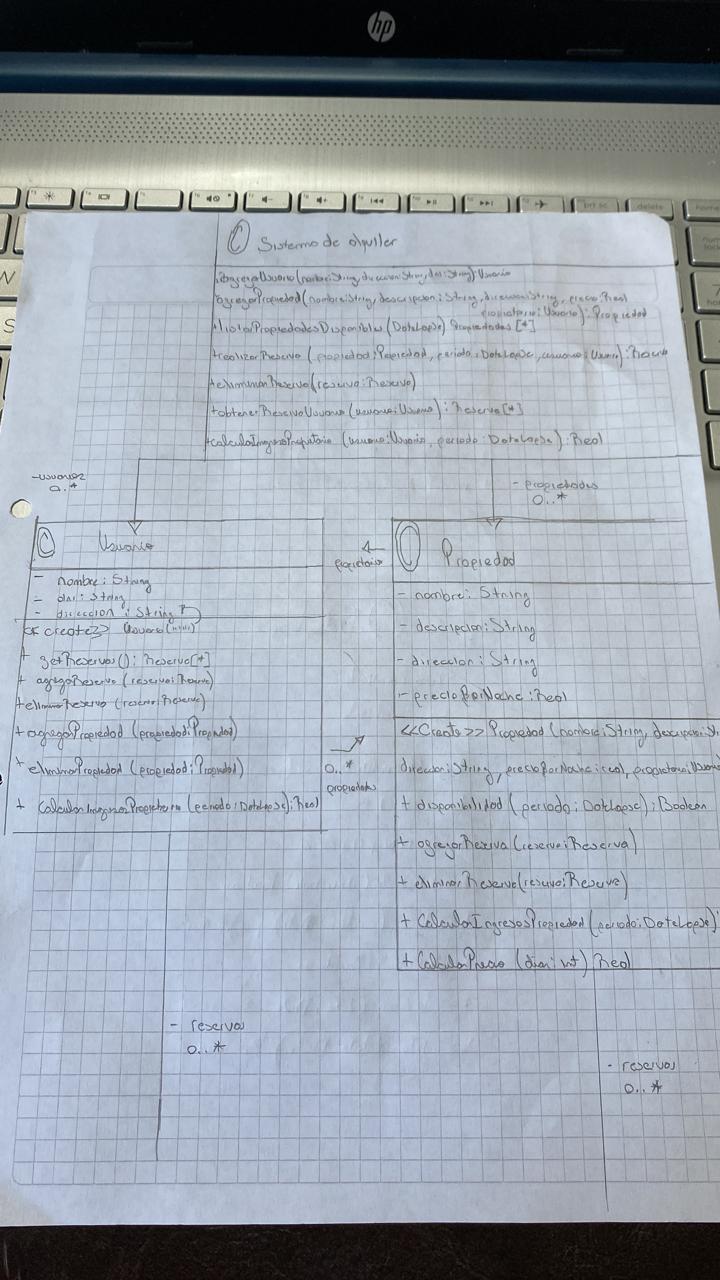 hp
delete
C Sistema de alquiler
+agregarUsuario(nombre:String, direccion:String, dni:String):Usuario
agregarPropiedad(nombre:String, descripcion:String, direccion:String, precio:Real
propietario:Usuario):Propiedad
+listarPropiedadesDisponibles(DateLapse) Propiedades [*]
+realizarReserva (propiedad:Propiedad, periodo:DateLapse, usuario:Usuario):Reserva
+eliminarReserva(reserva:Reserva)
+obtenerReservaUsuario (usuario:Usuario): Reserva[*]
+calcularIngresoPropietario (usuario:Usuario, periodo:DateLapse):Real
-usuarios
0..*
- propiedades
0..*
C Usuario
- nombre: String
- dni: String
- direccion: String
<<create>> Usuario( )
+ getReservas(): Reserva[*]
+ agregarReserva (reserva:Reserva)
+eliminarReserva (reserva:Reserva)
+ agregarPropiedad (propiedad:Propiedad)
+ eliminarPropiedad (propiedad:Propiedad)
+ CalcularIngresosPropietario (periodo:DateLapse):Real
propietario
0..*
propiedades
C Propiedad
- nombre: String
- descripcion: String
- direccion: String
- precioPorNoche: Real
<<Create>> Propiedad (nombre:String, descripcion:St
direccion:String, precioPorNoche:real, propietario:Usuario
+ disponibilidad (periodo: DateLapse): Boolean
+ agregarReserva (reserva:Reserva)
+ eliminarReserva(reserva:Reserva)
+ CalcularIngresosPropiedad (periodo:DateLapse)
+ CalcularPrecio (dias:int) Real
- reservas
0..*
- reservas
0..*